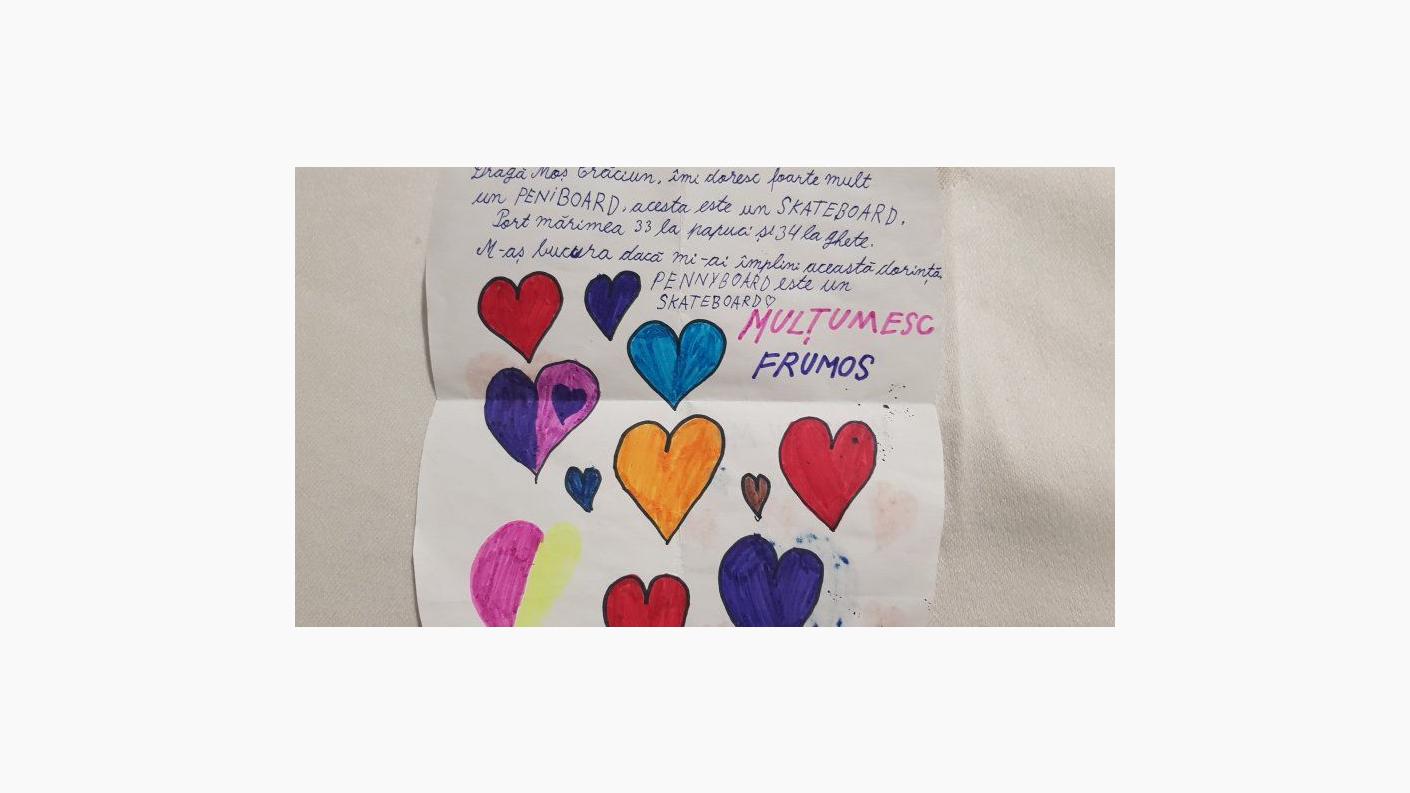 Dragă Moș Crăciun, îmi doresc foarte mult
un PENiBOARD, acesta este un SKATEBOARD.
Port mărimea 33 la papuci și 34 la ghete.
M-aș bucura dacă mi-ai împlini această dorință.
PENNYBOARD este un
SKATEBOARD♡
MULȚUMESC
FRUMOS